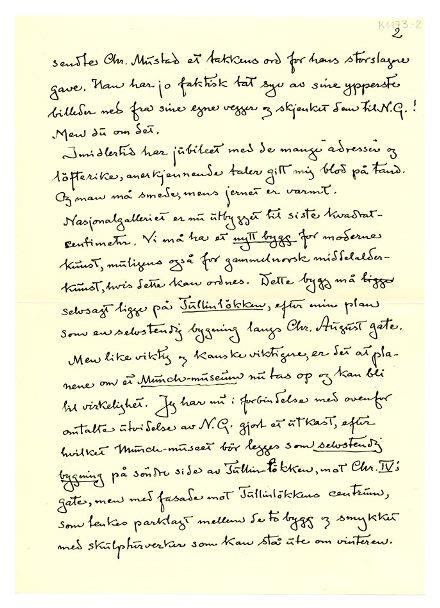 K1173-2
2
sendte Chr. Mustad et takkens ord for hans storslagne
gave. Han har jo faktisk tat syv av sine ypperste
billeder ned fra sine egne vegger og skjenket dem til N.G.!
Men du om det.
Imidlertid har jubileet med de mange adresser og
löfterike, anerkjennende taler gitt mig blod på tand.
Og man må smede, mens jernet er varmt.
Nasjonalgalleriet er nu utbygget til siste kvadrat-
centimeter. Vi må ha et nytt bygg for moderne
kunst, muligens også for gammelnorsk middelalder-
kunst, hvis dette kan ordnes. Dette bygg må ligge
selvsagt ligge på Tullinlökken, efter min plan
som en selvstendig bygning langs Chr. August gate.
Men like viktig og kanske viktigere, er det at pla-
nene om et Munch-museum nu tas op og kan bli
til virkelighet. Jeg har nu i forbindelse med ovenfor
omtalte utvidelse av N.G. gjort et utkast, efter
hvilket Munch-museet bör legges som selvstendig
bygning på söndre side av Tullinlökken, mot Chr. IV's
gate, men med fasade mot Tullinlökkens centrum,
som tenkes parklagt mellem de to bygg og smykket
med skulpturverker som kan stå ute om vinteren.